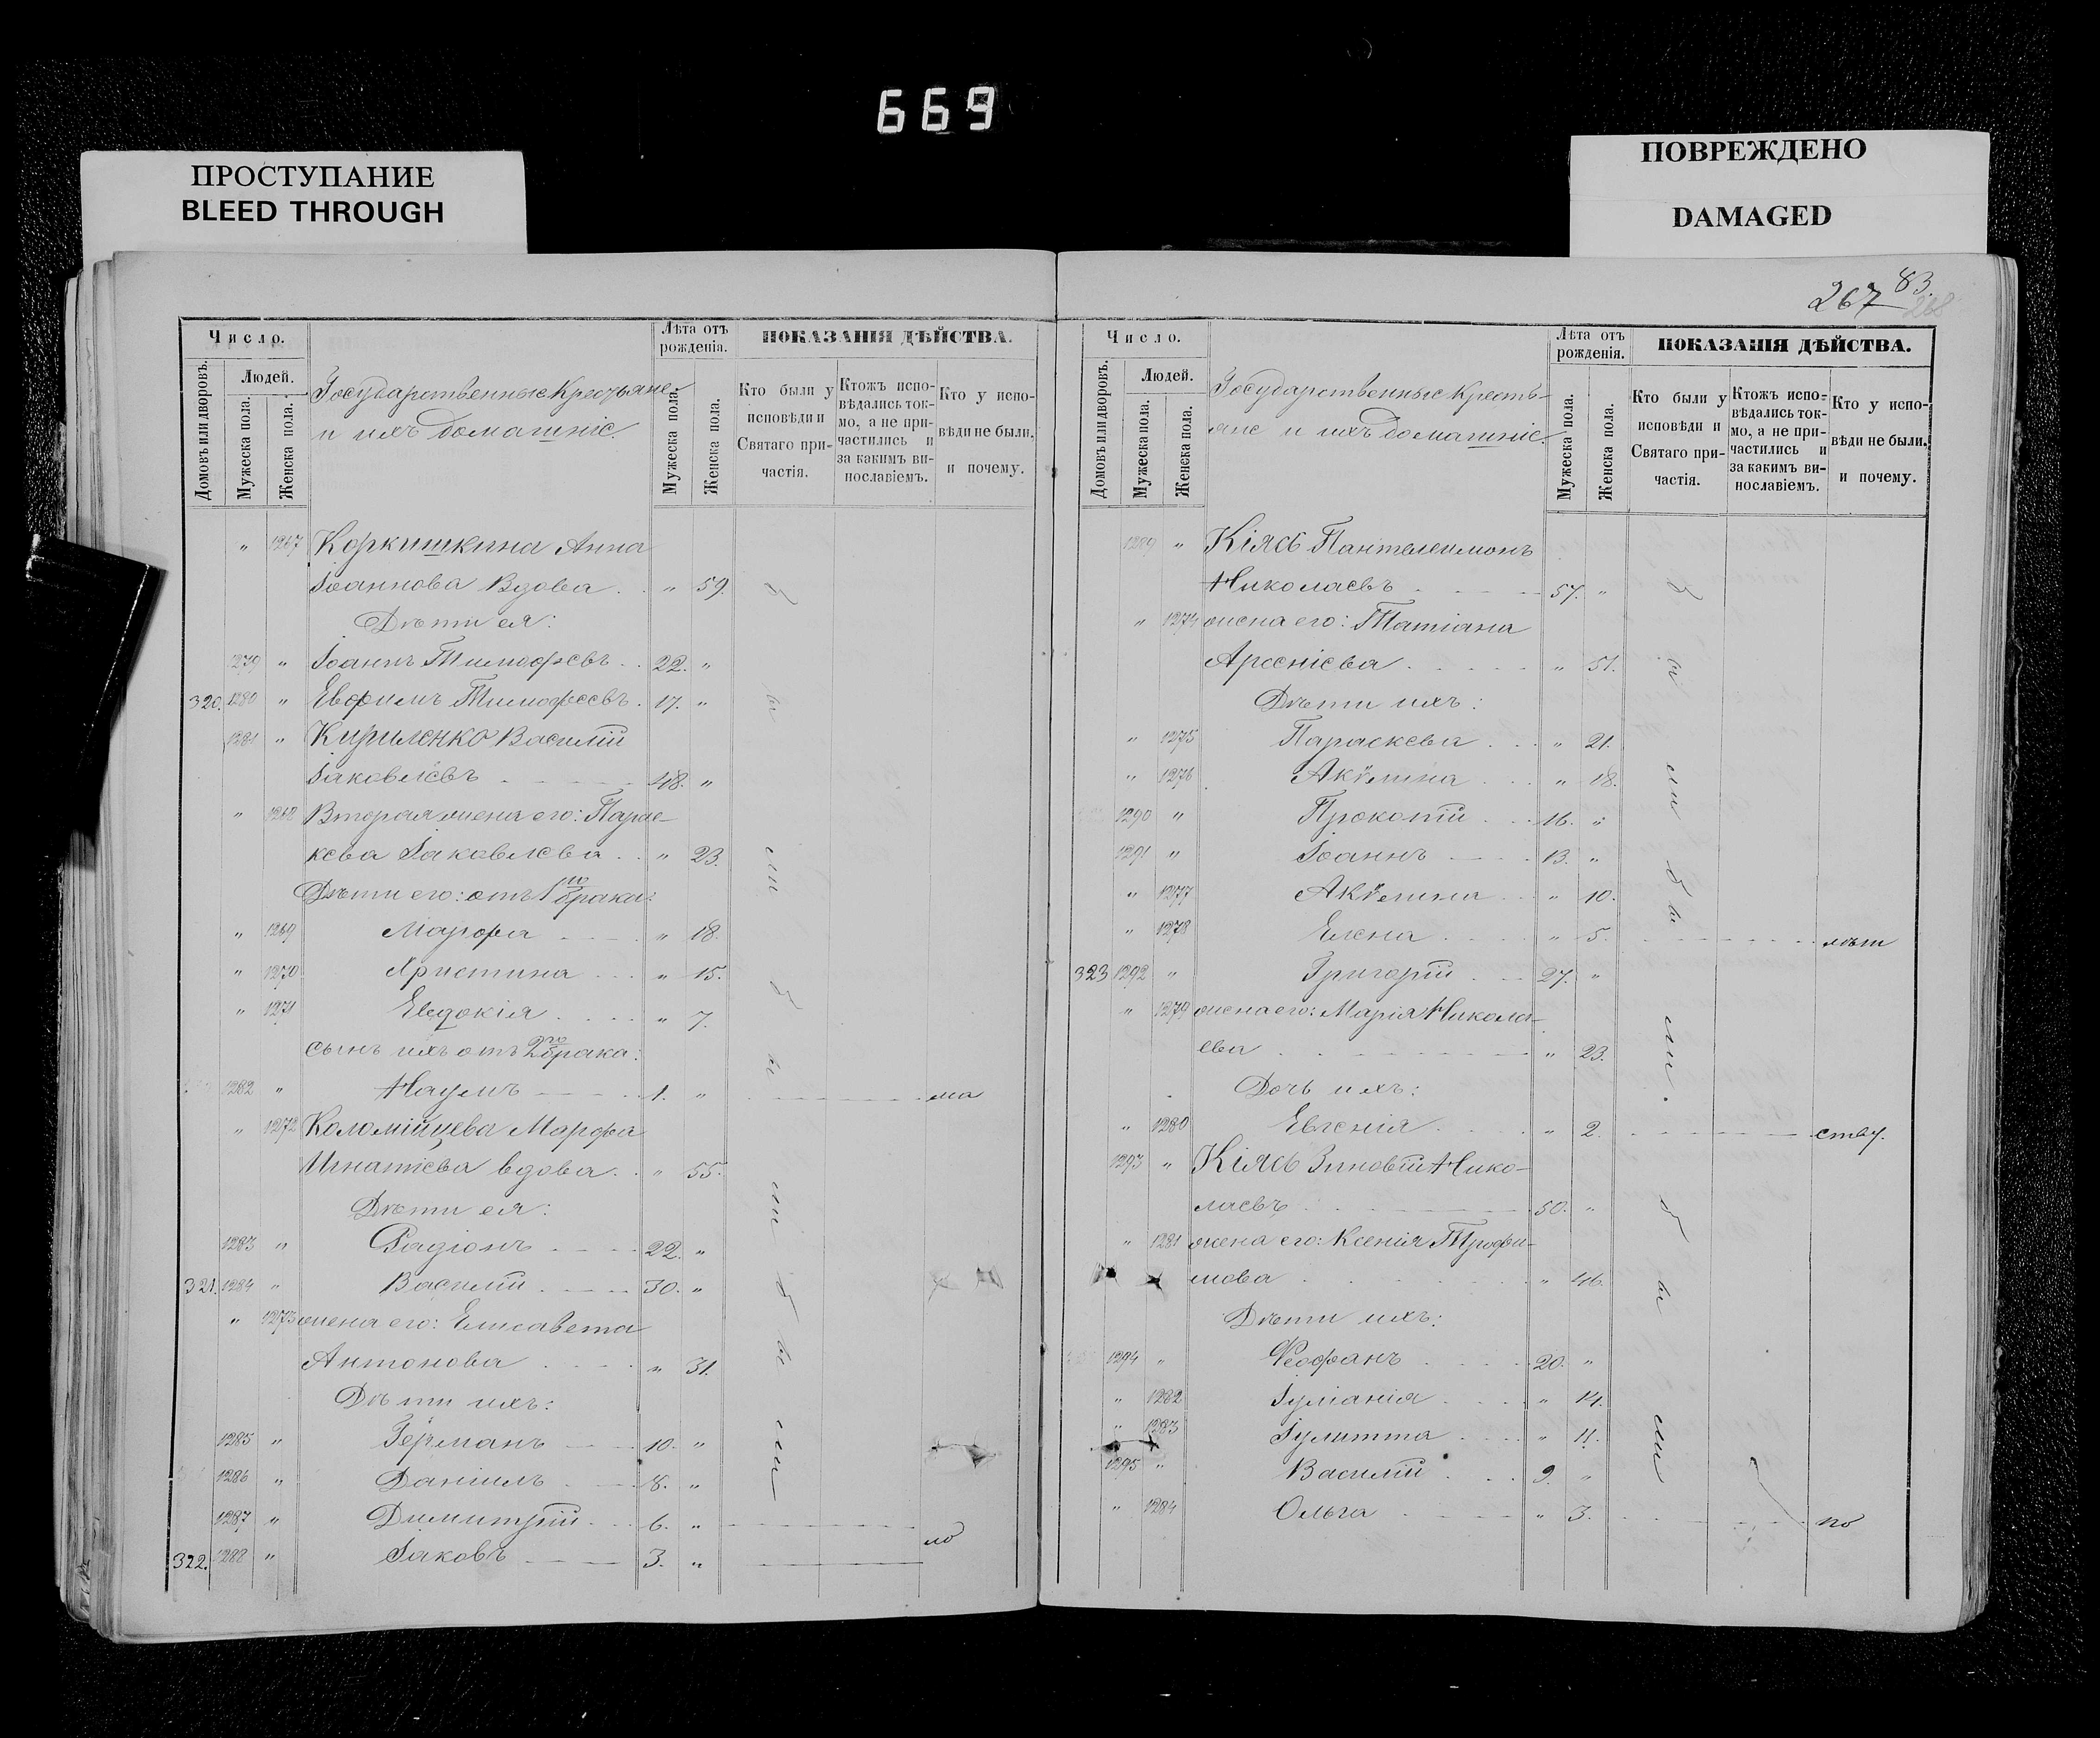 669
ПРОСТУПАНИЕ
BLEED THROUGH
ПОВРЕЖДЕНО
DAMAGED
267 83.
268
Число.
Людей.
Домовъ или дворовъ.
Мужеска пола.
Женска пола.
Государственные Крестьяне
и ихъ домашніе.
Лѣта отъ рожденія.
Мужеска пола.
Женска пола.
ПОКАЗАНІЯ ДѢЙСТВА.
Кто были у исповѣди и Святаго причастія.
Ктожъ исповѣдались токмо, а не причастились и за какимъ винословіемъ.
Кто у исповѣди не были, и почему.
" 1267 Коркишкина Анна
Іоаннова Вдова . . " 59.
Дѣти ея:
1279 " Іоаннъ Тимофеевъ . . 22. "
320. 1280 " Евфимъ Тимофеевъ . 17. "
1281 " Кириленко Василій
Іаковлевъ 48. "
" 1268 Вторая жена его: Парас-
кева Іаковлева . . " 23.
Дѣти его: отъ 1го брака:
" 1269 Марфа " 18.
" 1270 Христина " 15.
" 1271 Евдокія " 7.
сынъ ихъ отъ 2го брака:
1282 " Наумъ 1. " ма
" 1272 Коломійцева Марфа
Игнатіева вдова . . " 55.
Дѣти ея:
1283 " Радіонъ 22. "
321. 1284 " Василій 30. "
" 1273 жена его: Елисавета
Антонова " 31.
Дѣти ихъ:
1285 " Германъ 10. "
1286 " Даніилъ 8. "
1287 " Димитрій 6. "
ло
322. 1288 " Іаковъ 3. "
б ы ли б ы ли б ы ли
Число.
Людей.
Домовъ или дворовъ.
Мужеска пола.
Женска пола.
Государственные Кресть-
яне и ихъ домашніе.
Лѣта отъ рожденія.
Мужеска пола.
Женска пола.
ПОКАЗАНІЯ ДѢЙСТВА.
Кто были у исповѣди и Святаго причастія.
Ктожъ исповѣдались токмо, а не причастились и за какимъ винословіемъ.
Кто у исповѣди не были, и почему.
1289 " Кіясъ Пантелеимонъ
Николаевъ 57. "
" 1274 жена его: Татіана
Арсеніева " 51.
Дѣти ихъ:
" 1275 Параскева " 21.
" 1276 Акѵлина " 18.
1290 " Прокопій 16. "
1291 " Іоаннъ 13. "
" 1277 Акѵлина " 10.
" 1278 Елена " 5. лѣт
323 1292 " Григорій 27. "
" 1279 жена его: Марія Никола-
ева " 23.
Дочь ихъ:
" 1280 Евгенія " 2. ству.
1293 " Кіясъ Зиновій Нико-
лаевъ 50. "
" 1281 жена его: Ксенія Трофи-
мова " 46.
Дѣти ихъ:
1294 " Феофанъ 20. "
" 1282 Іуліанія " 14.
" 1283 Іулитта " 11.
1295 " Василій 9. "
" 1284 Ольга " 3. по
б ы ли б ы ли. б ы ли